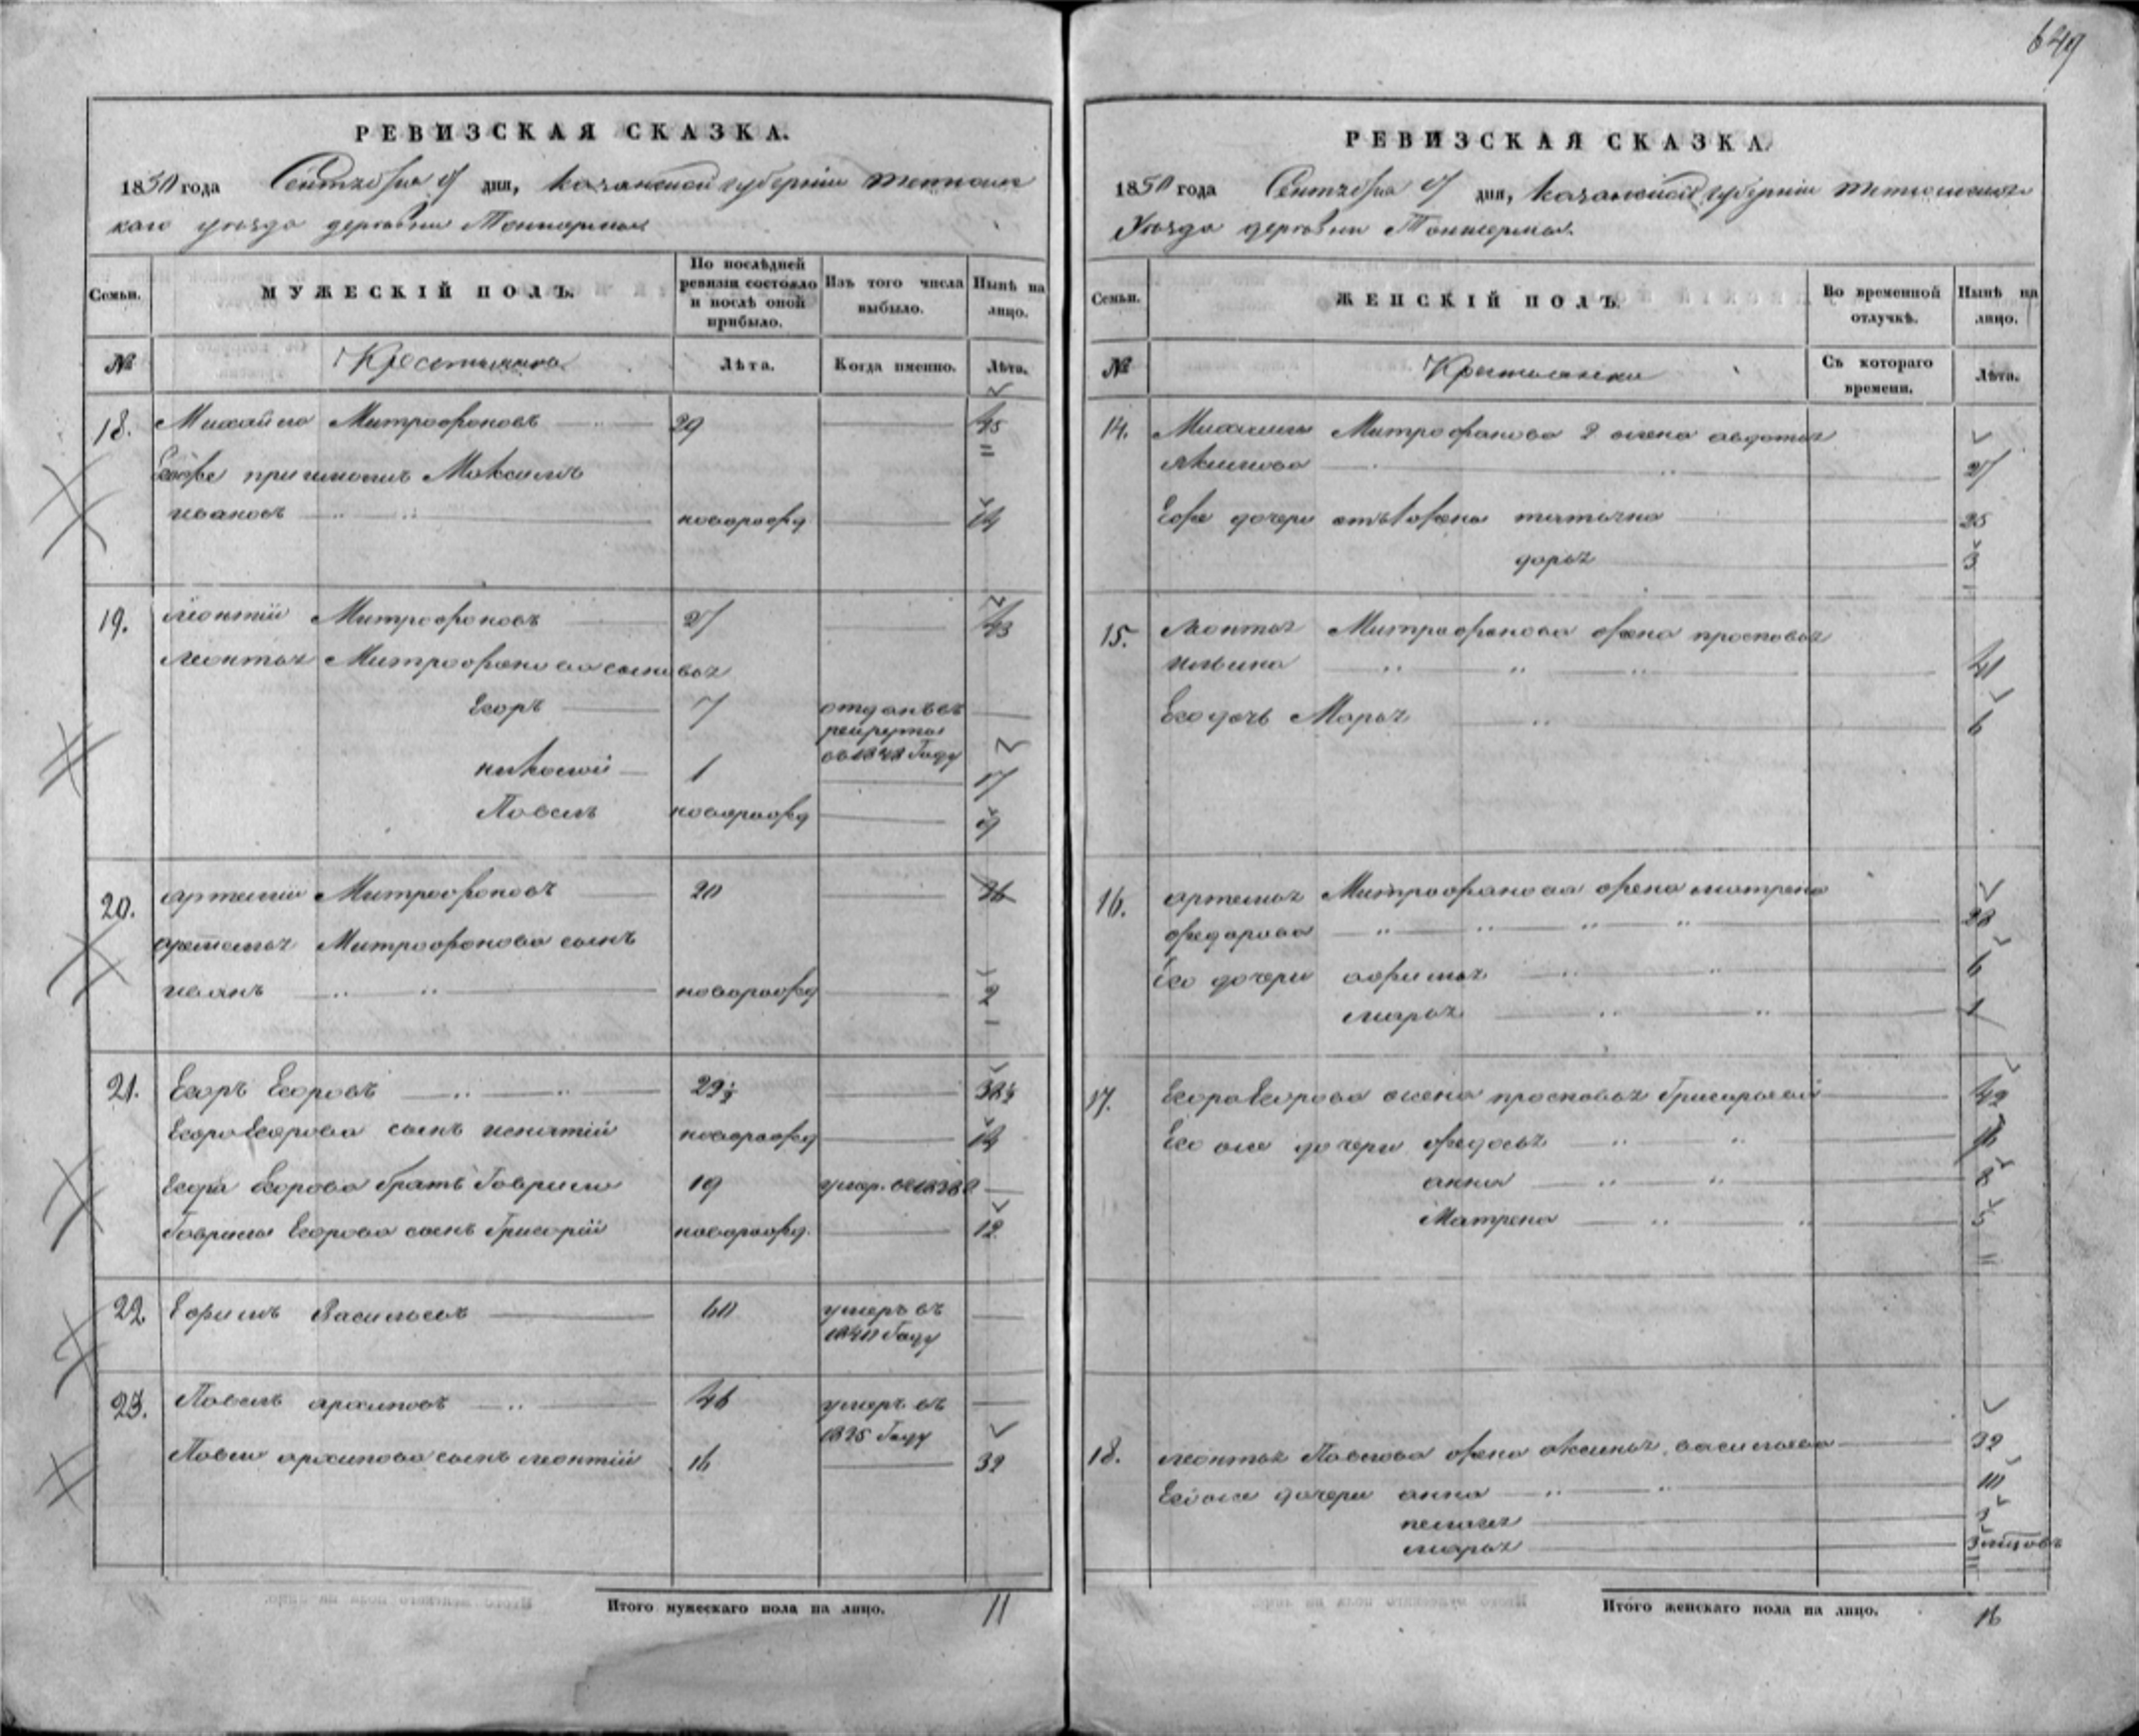 649
РЕВИЗСКАЯ СКАЗКА.
1850 года Сентября 9 дня, казанской губернии тетюшс
каго уезда деревни
Семьи.
МУЖЕСКІЙ ПОЛЪ.
По послѣдней ревизіи состояло и послѣ оной прибыло.
Изъ того числа выбыло.
Нынѣ на лицо.
№
Крестьяна
Лѣта.
Когда именно.
Лѣта.
18. Михайло Митрофоновъ 29 45
Егоже приимышъ Максимъ
ивановъ новорожд 14
19. леонтій Митрофоновъ 27 43
леонтья Митрофонова сыновья
Егоръ 7 отданъ въ
рекруты
въ 1848 году
николай 1 17
Павелъ новорожд 9
20. артемий Митрофоновъ 20 36
артемья Митрофонова сынъ
иванъ новорожд 2
21. Егоръ Егоровъ 22½ 38½
Егора Егорова сынъ игнатій новорожд 14
Егора Егорова братъ Гаврило 19 умер. въ 1838
Гаврилы Егорова сынъ Григорій новорожд. 12
22 Ефимъ Васильевъ 60 умеръ въ
1840 году
23. Павелъ архиповъ 46 умеръ въ
1835 году
Павла архипова сынъ леонтій 16 32
Итого мужескаго пола на лицо. 11
РЕВИЗСКАЯ СКАЗКА.
1850 года Сентября 9 дня, казанской губернии тетюшскаго
Уезда деревни
Семьи.
ЖЕНСКІЙ ПОЛЪ.
Во временной отлучкѣ.
Нынѣ на лицо.
№
Крестьянки
Съ котораго времени.
Лѣта.
14. Михайлы Митрофанова 2 жена авдотья
якимова 27
Егоже дочери отъ 1 жены татьяна 25
дарья 3
15. леонтья Митрофанова жена просковья
ильина 41
Его дочь Марья 6
16. артемья Митрофанова жена матрена
федарова 28
Его дочери афимья 6
марья 1
17. Егора Егорова жена просковья Григорьева 42
Его же дочери федосья 16
анна 8
Матрена 5
18. леонтья Павлова жена аксинья васильева 32
Его же дочери анна 10
пелагея
марья
Итого женскаго пола на лицо. 16